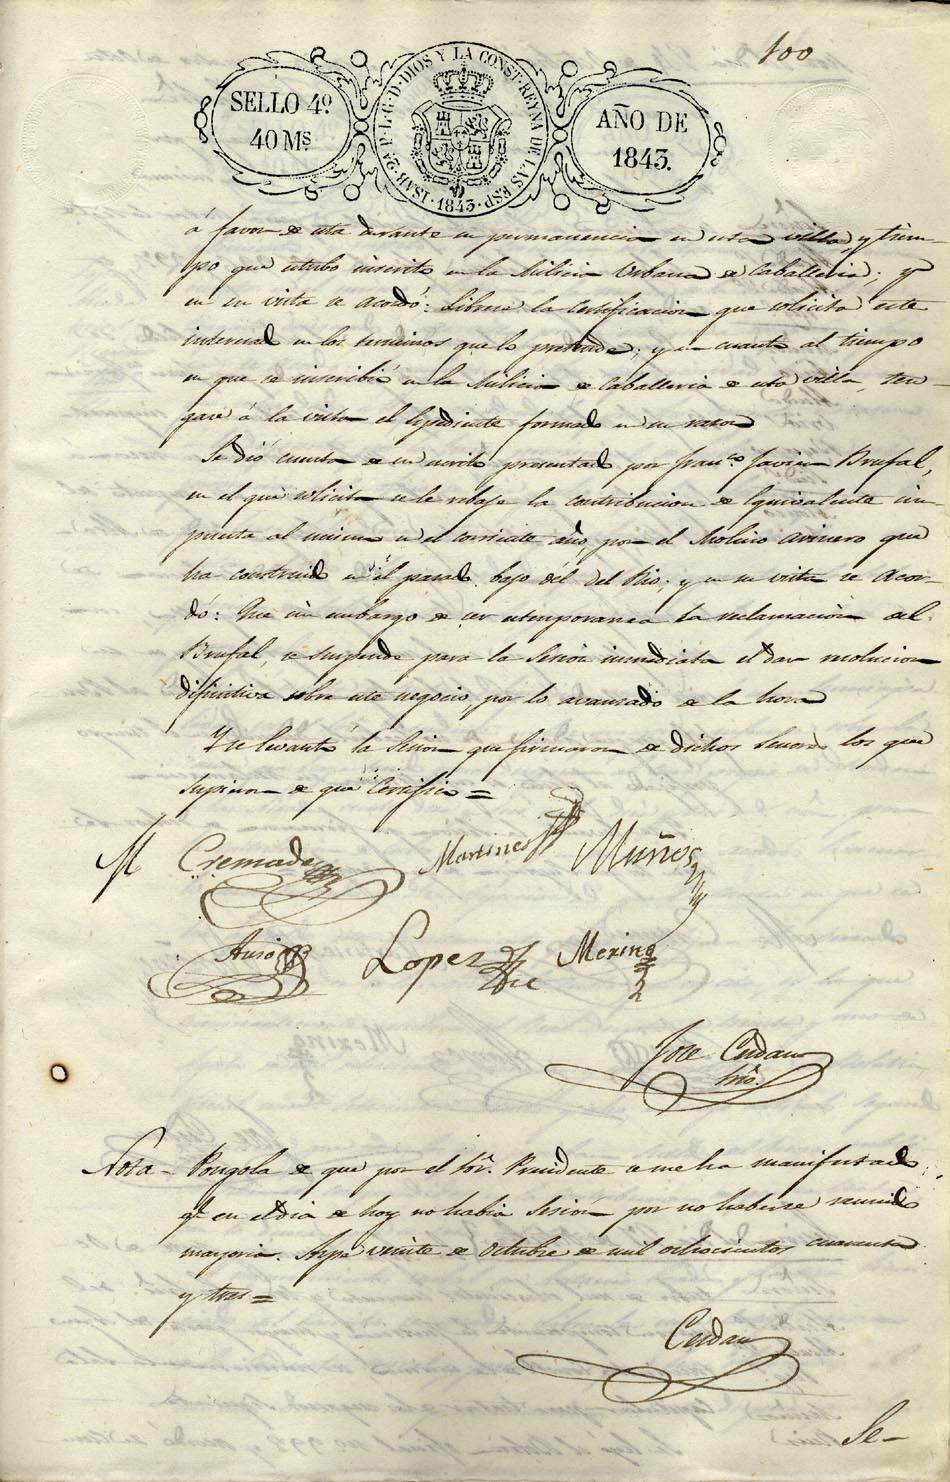 100
SELLO 4º
40 Ms
ISAB. 2ª P. L. G. D. DIOS Y LA CONST. REYNA DE LAS ESP. 1843
AÑO DE
1843.
á favor de esta durante su permanencia en esta villa, y tiem-
po que estubo inscrito en la Milicia Urbana de Caballeria; y
en su vista se acordó: Librese la Certificacion que solicita este
interesado en los terminos que lo pretende; y en cuanto al tiempo
en que se inscribió en la Milicia de Caballeria de esta villa, ten-
gase á la vista el Espediente formado en su razon
Se dió cuenta de un escrito presentado por Franco. Javier Brufal,
en el que solicita se le rebaje la contribucion de Equivalente im-
puesta al mismo en el corriente año, por el Molino arinero que
ha construido en el parado bajo del del Rio; y en su vista se Acor-
dó: Que sin embargo de ser estemporanea la reclamacion del
Brufal, se suspende para la Sesion inmediata el dar resolucion
difinitiva sobre este negocio, por lo avanzado de la hora
Y se levantó la Sesion que firmaron de dichos Señores los que
supieron de que Certifico =
Cremades
Martinez
Muños
Auso
Lopez
Merino
Jose Cerdan
Srio.
Nota - Pongola de que por el Sor. Presidente se me ha manifestado
qe. en el dia de hoy no habia Sesion por no haberse reunido
mayoria. Aspe veinte de Octubre de mil ochocientos cuarenta
y tres =
Cerdan
Se-